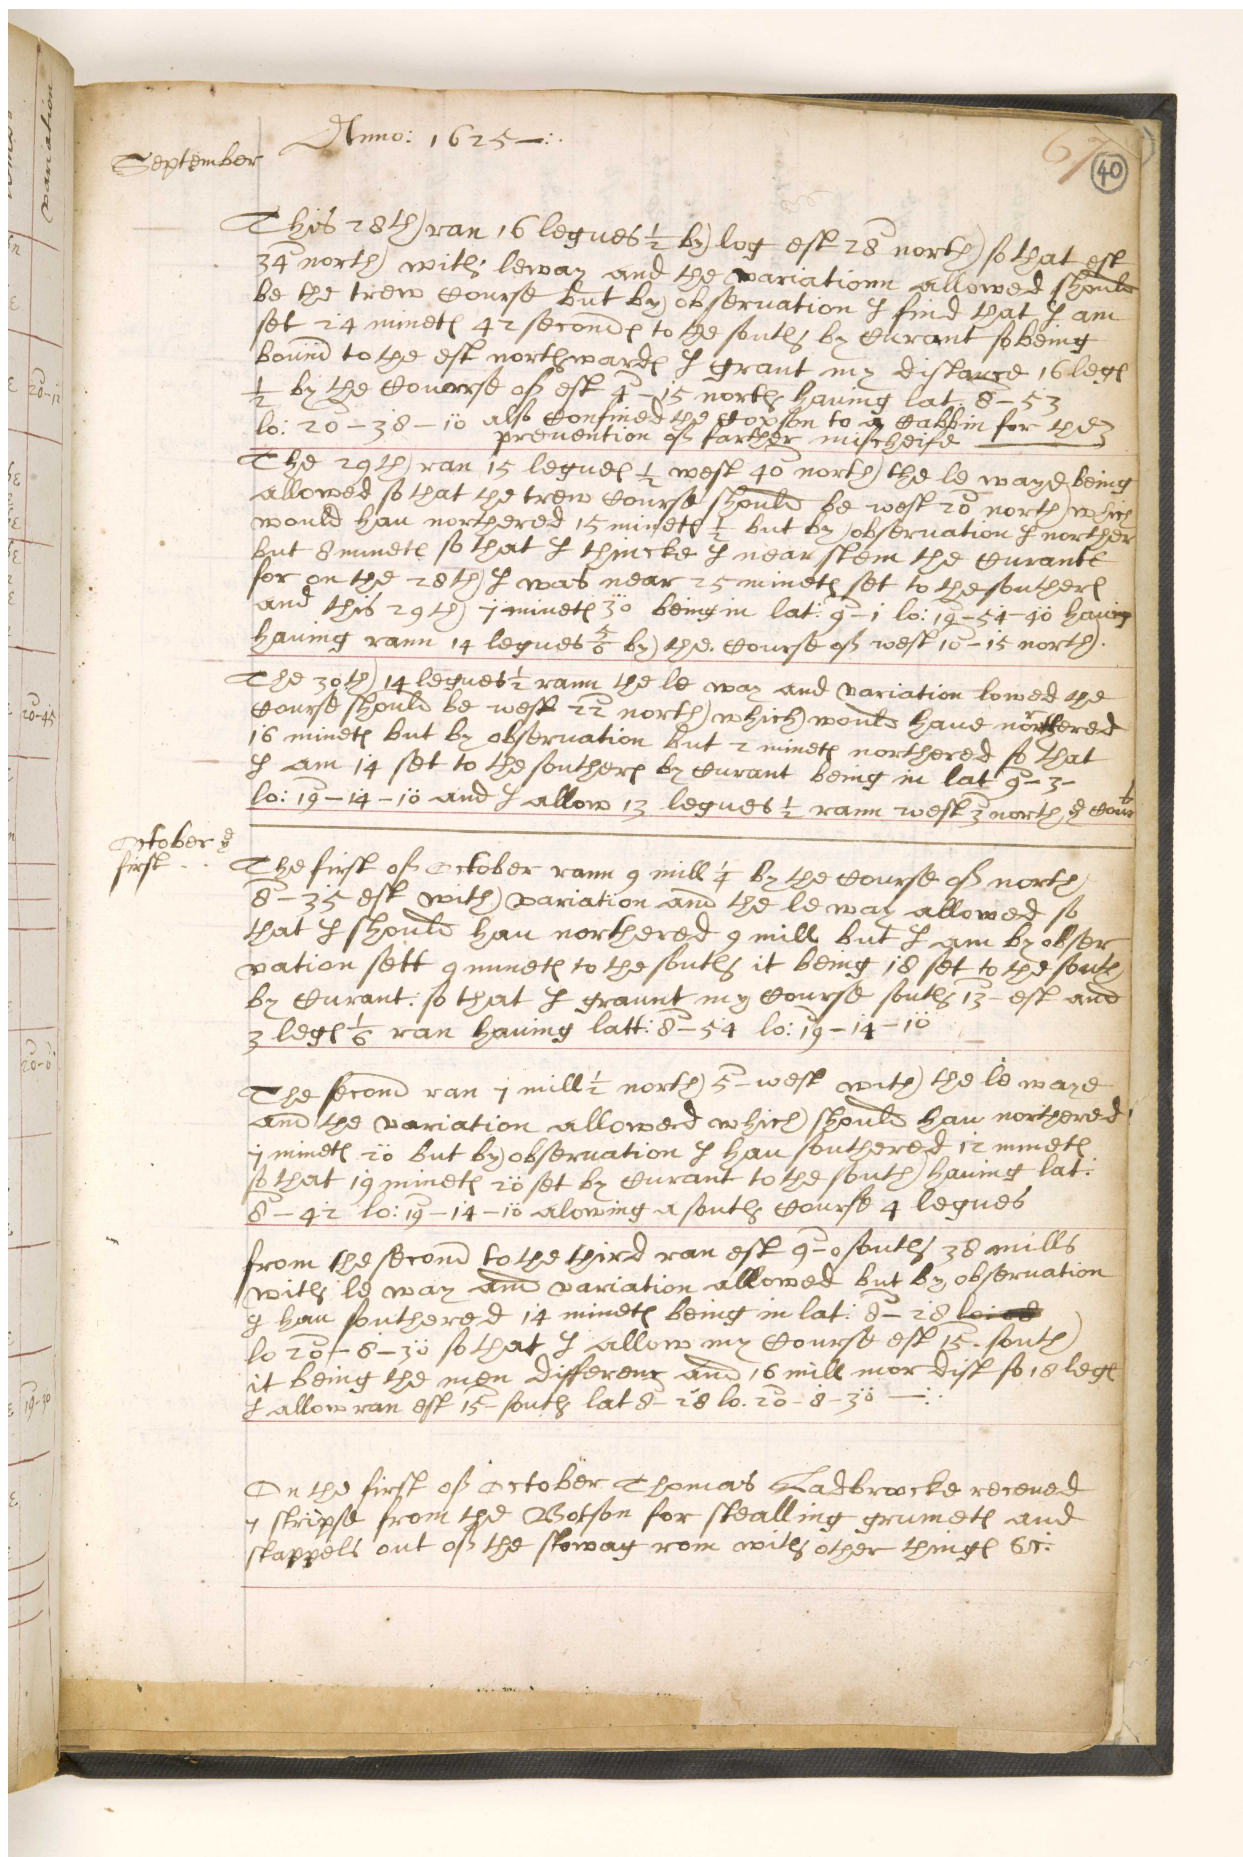 variation
20-12
20-45
19-40
67
40
Anno: 1625 —:.
September
This 28th ran 16 legues ½ by log est 28 north so that est
34 north with leway and the variationn allowed should
be the trew Course but by observation I find that I am
set 24 minets 42 seconds to the south by Curant so being
bound to the est northwards I grant my distance 16 legs
½ by the Couorse off est 4-15 north having lat. 8-53
lo: 20-38-10 also Confined the to a Cabbin for the
prevention off farther mischeife
The 29th ran 15 legues ½ west 40 north the le waye being
allowed so that the trew Course should be west 20 north which
would hau northered 15 minets ½ but by observation I norther
but 8 minets so that I thincke I near stem the Curantt
for on the 28th I was near 25 minets set to the southers
and this 29th 7 minets 30 being in lat: 9-1 lo: 19-54-40 having
having rann 14 legues 5/6 by the Course off west 10-15 north.
The 30th 14 legues ½ rann the le way and variation lowed the
Course should be west 22 north which would haue northered
16 minets but by observation but 2 minets northered so that
I am 14 set to the southers by Curant being in lat 9-3-
lo: 19-14-10 and I allow 13 legues ½ rann west 3 north ye Cour
October ye
first . .
The first off October rann 9 mill ¼ by the Course off north
8-35 est with variation and the le way allowed so
that I should hau northered 9 mill but I am by obser
vation sett 9 minets to the south it being 18 set to the south
by Curant: so that I graunt my Course south 13- est and
3 legs 1/6 ran having latt: 8-54 lo: 19-14-10
The second ran 7 mill ½ north 5-west with the le waye
and the variation allowed which should hau northered
7 minets 20 but by observation I hau southered 12 minets
so that 19 minets 20 set by Curant to the south having lat:
8-42 lo: 19-14-10 alowing a south Course 4 legues
from the second to the third ran est 9-0 south 38 mills
with le way and variation allowed but by observation
I hau southered 14 minets being in lat: 8-28
lo 20-8-30 so that I allow my Course est 15- south
it being the men differenc and 16 mill mor dist so 18 legs
I allow ran est 15- south lat 8-28 lo. 20-8-30 —:.
On the first off October Thomas Ladbrocke receued
7 stripse from the Botson for stealling grumets and
stappels out off the stoway rom with other things &c: